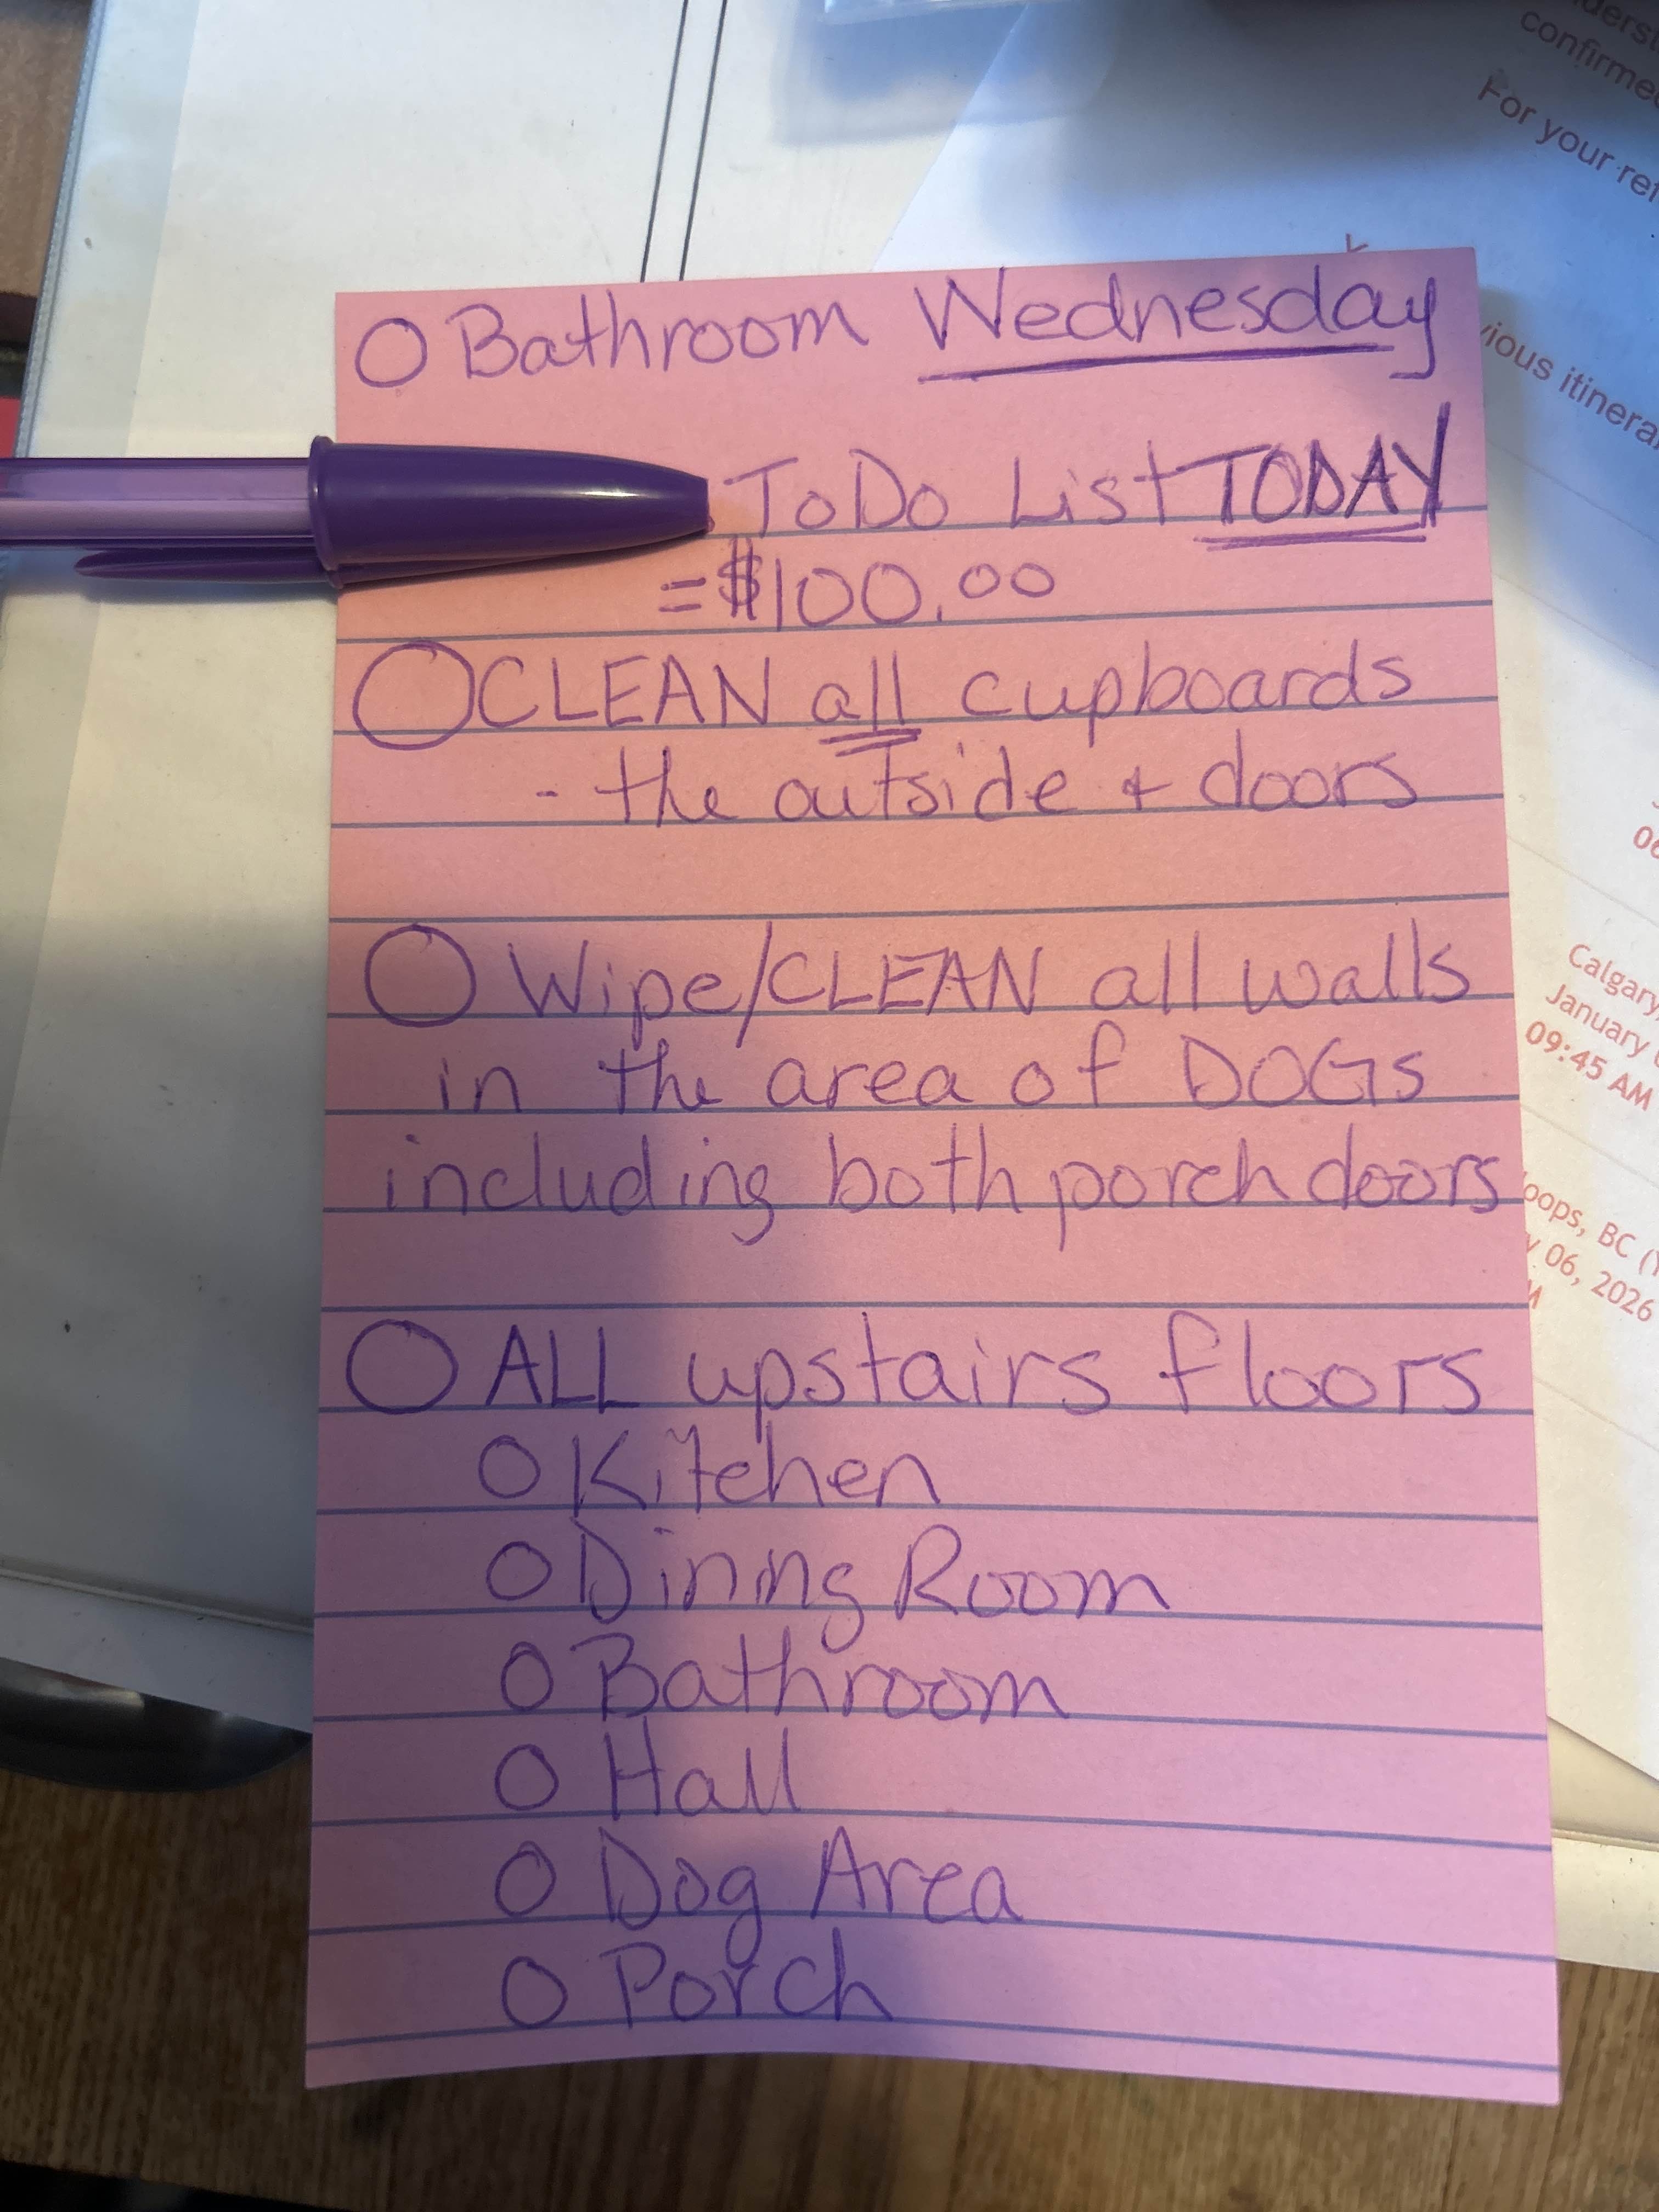 confirme
For your ref
vious itinera
O Bathroom Wednesday
ToDo List TODAY
= $100.00
O CLEAN all cupboards
- the outside + doors
O Wipe/CLEAN all walls
in the area of DOGs
including both porch doors
O ALL upstairs floors
O Kitchen
O Dining Room
O Bathroom
O Hall
O Dog Area
O Porch
06
Calgary,
January
09:45 AM
oops, BC (
06, 2026